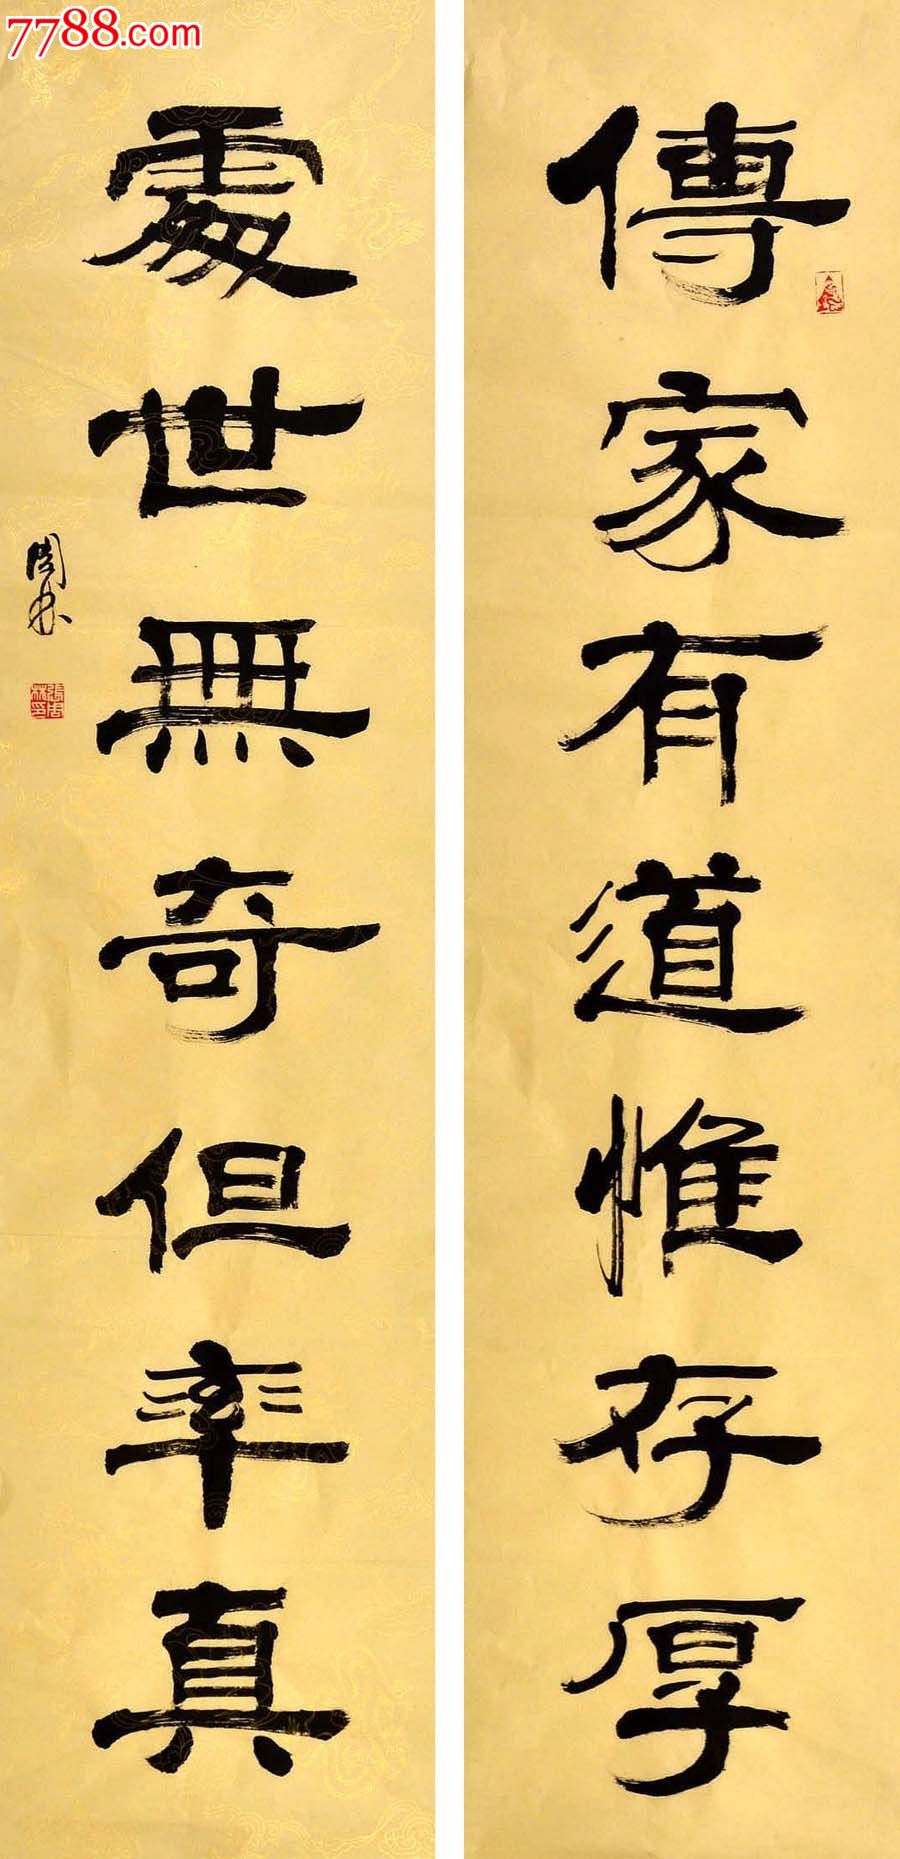 7788.com
傳家有道惟存厚
處世無奇但率真
周林
張周林印